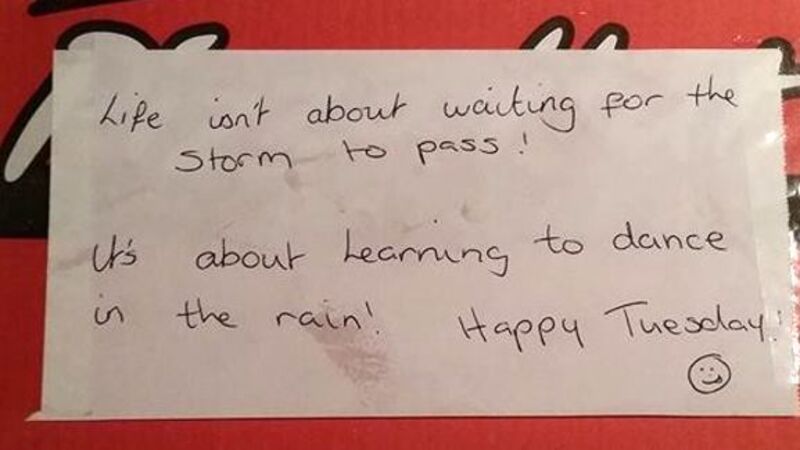 Life isn't about waiting for the
storm to pass!
It's about learning to dance
in the rain! Happy Tuesday!